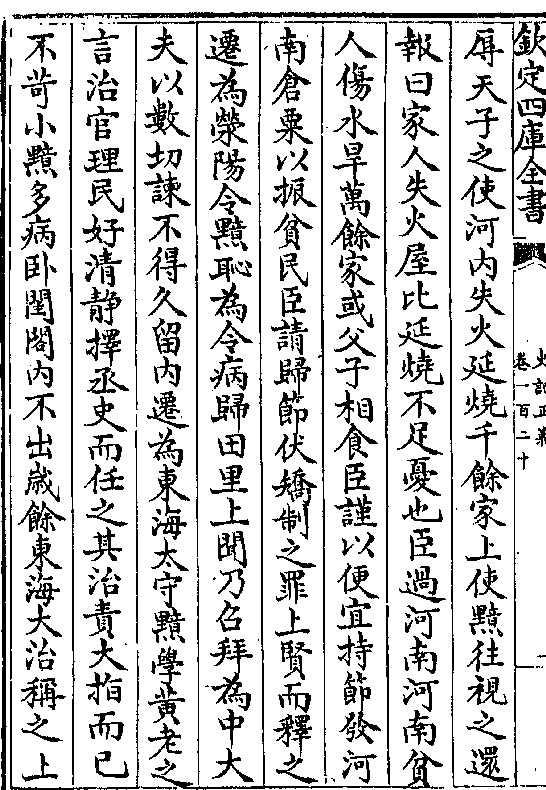 欽定四庫全書
史記正義
卷一百二十
辱天子之使河内失火延燒千餘家上使黯往視之還
報曰家人失火屋比延燒不足憂也臣過河南河南貧
人傷水旱萬餘家或父子相食臣謹以便宜持節發河
南倉粟以振貧民臣請歸節伏矯制之罪上賢而釋之
遷為滎陽令黯恥為令病歸田里上聞乃召拜為中大
夫以數切諫不得久留内遷為東海太守黯學黃老之
言治官理民好清靜擇丞史而任之其治責大指而已
不苛小黯多病卧閨閤内不出歲餘東海大治稱之上